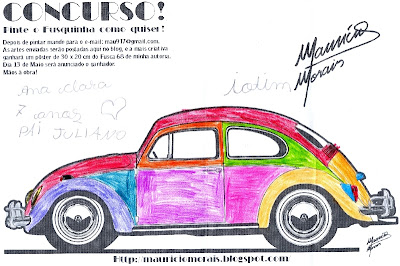 CONCURSO!
Pinte o Fusquinha como quiser!
Depois de pintar mande para o e-mail: mau917@gmail.com.
As artes enviadas serão postadas aqui no blog, e a mais criativa
ganhará um pôster de 30 x 20 cm do Fusca 68 de minha autoria.
Dia 13 de Maio será anunciado o ganhador.
Mãos à obra!
Maurício
Morais
ana clara
7 anos
PAI JULIANO
Maurício
Morais
Http://mauriciomorais.blogspot.com